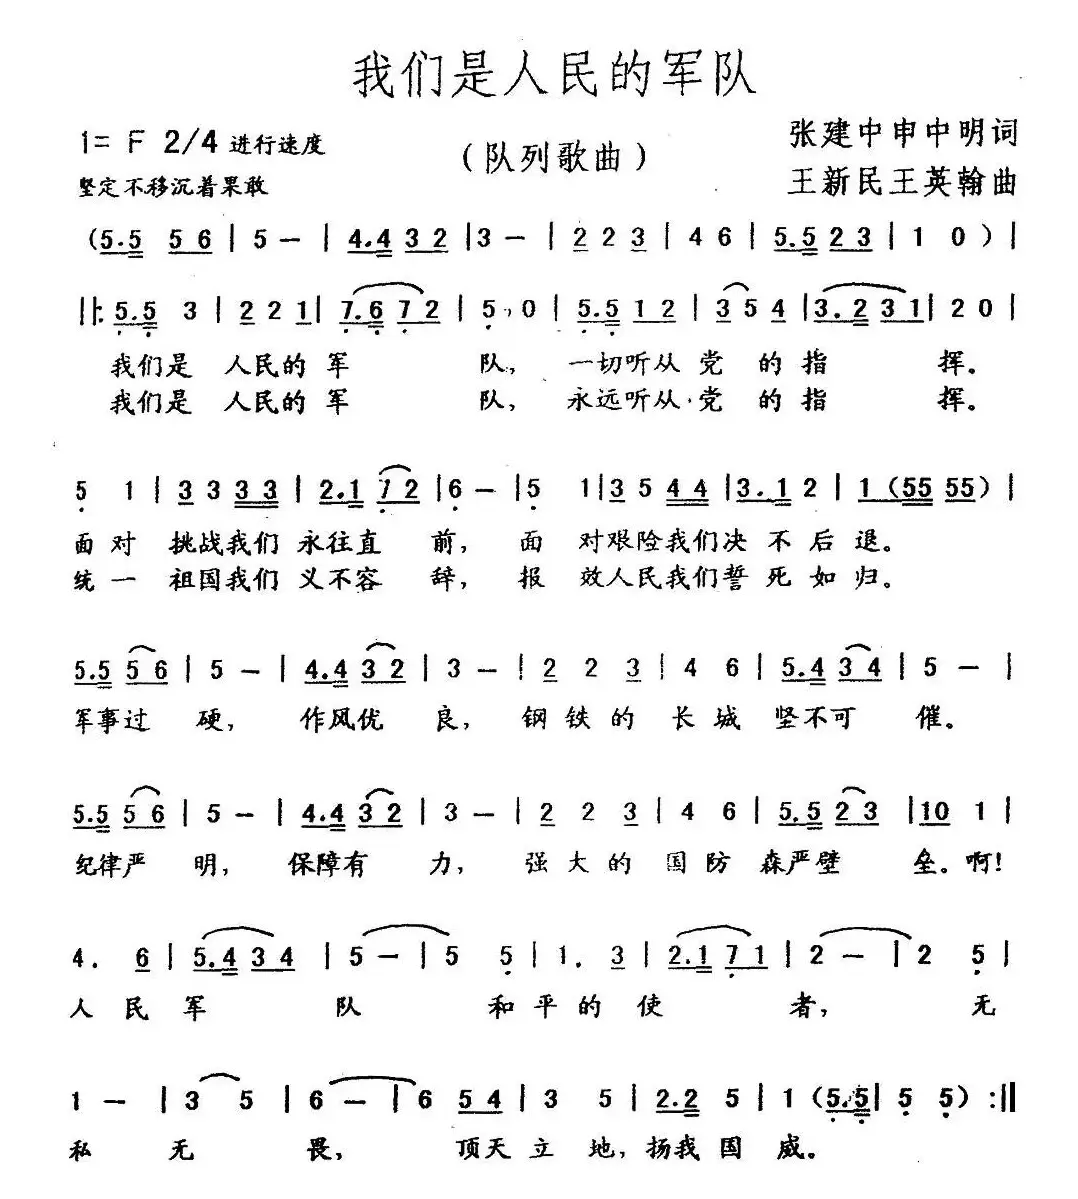 我们是人民的军队
1= F 2/4 进行速度
(队列歌曲)
张建中申中明词
坚定不移沉着果敢
王新民王英翰曲
(5.5 5 6 | 5 — | 4.4 3 2 | 3 — | 2 2 3 | 4 6 | 5.5 2 3 | 1 0 ) |
||: 5.5 3 | 2 2 1 | 7.6 7 2 | 5 , 0 | 5.5 1 2 | 3 5 4 | 3.2 3 1 | 2 0 |
我们是 人民的 军 队, 一切听从 党 的 指 挥。
我们是 人民的 军 队, 永远听从 党 的 指 挥。
5 1 | 3 3 3 3 | 2.1 7 2 | 6 — | 5 1 | 3 5 4 4 | 3.1 2 | 1 (55 55) |
面 对 挑战我们 永往直 前, 面 对艰险我们决 不 后 退。
统 一 祖国我们 义不容 辞, 报 效人民我们誓 死 如 归。
5.5 5 6 | 5 — | 4.4 3 2 | 3 — | 2 2 3 | 4 6 | 5.4 3 4 | 5 — |
军事过 硬, 作风优 良, 钢 铁 的 长 城 坚不可 催。
5.5 5 6 | 5 — | 4.4 3 2 | 3 — | 2 2 3 | 4 6 | 5.5 2 3 | 10 1 |
纪律严 明, 保障有 力, 强 大 的 国 防 森严壁 垒。啊!
4 . 6 | 5.4 3 4 | 5 — | 5 5 | 1 . 3 | 2.1 7 1 | 2 — | 2 5 |
人 民 军 队 和 平 的 使 者, 无
1 — | 3 5 | 6 — | 6 5 4 | 3 5 | 2.2 5 | 1 (5.5 | 5 5) :||
私 无 畏, 顶天 立 地, 扬我 国 威。